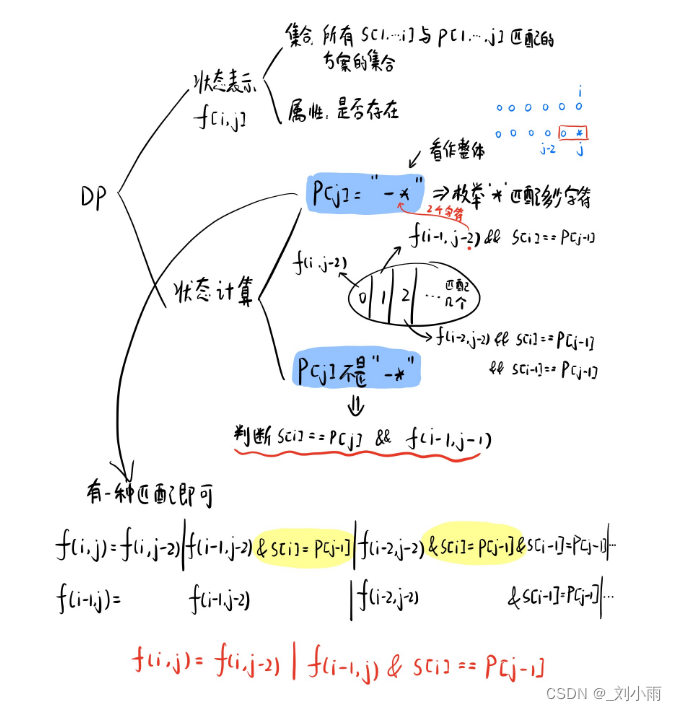 集合:所有 S[1,…i] 与 P[1,…,j] 匹配的
方案的集合
状态表示
f[i,j]
属性:是否存在
i
j-2 j
看作整体
DP
P[j] = "-*" ⇒ 枚举'*'匹配多少字符
2个字符
f(i-1, j-2) && S[i]==P[j-1]
f(i,j-2)
状态计算
0 1 2 …匹配
几个
f(i-2,j-2) && S[i]==P[j-1]
&& S[i-1]==P[j-1]
P[j]不是"-*"
判断S[i]==P[j] && f(i-1,j-1)
有一种匹配即可
f(i,j)=f(i,j-2)|f(i-1,j-2)&S[i]=P[j-1]|f(i-2,j-2)&S[i]=P[j-1]&S[i-1]=P[j-1]|…
f(i-1,j)= f(i-1,j-2) |f(i-2,j-2) &S[i-1]=P[j-1]|…
f(i,j)=f(i,j-2)|f(i-1,j)&S[i]==P[j-1]
CSDN @_刘小雨